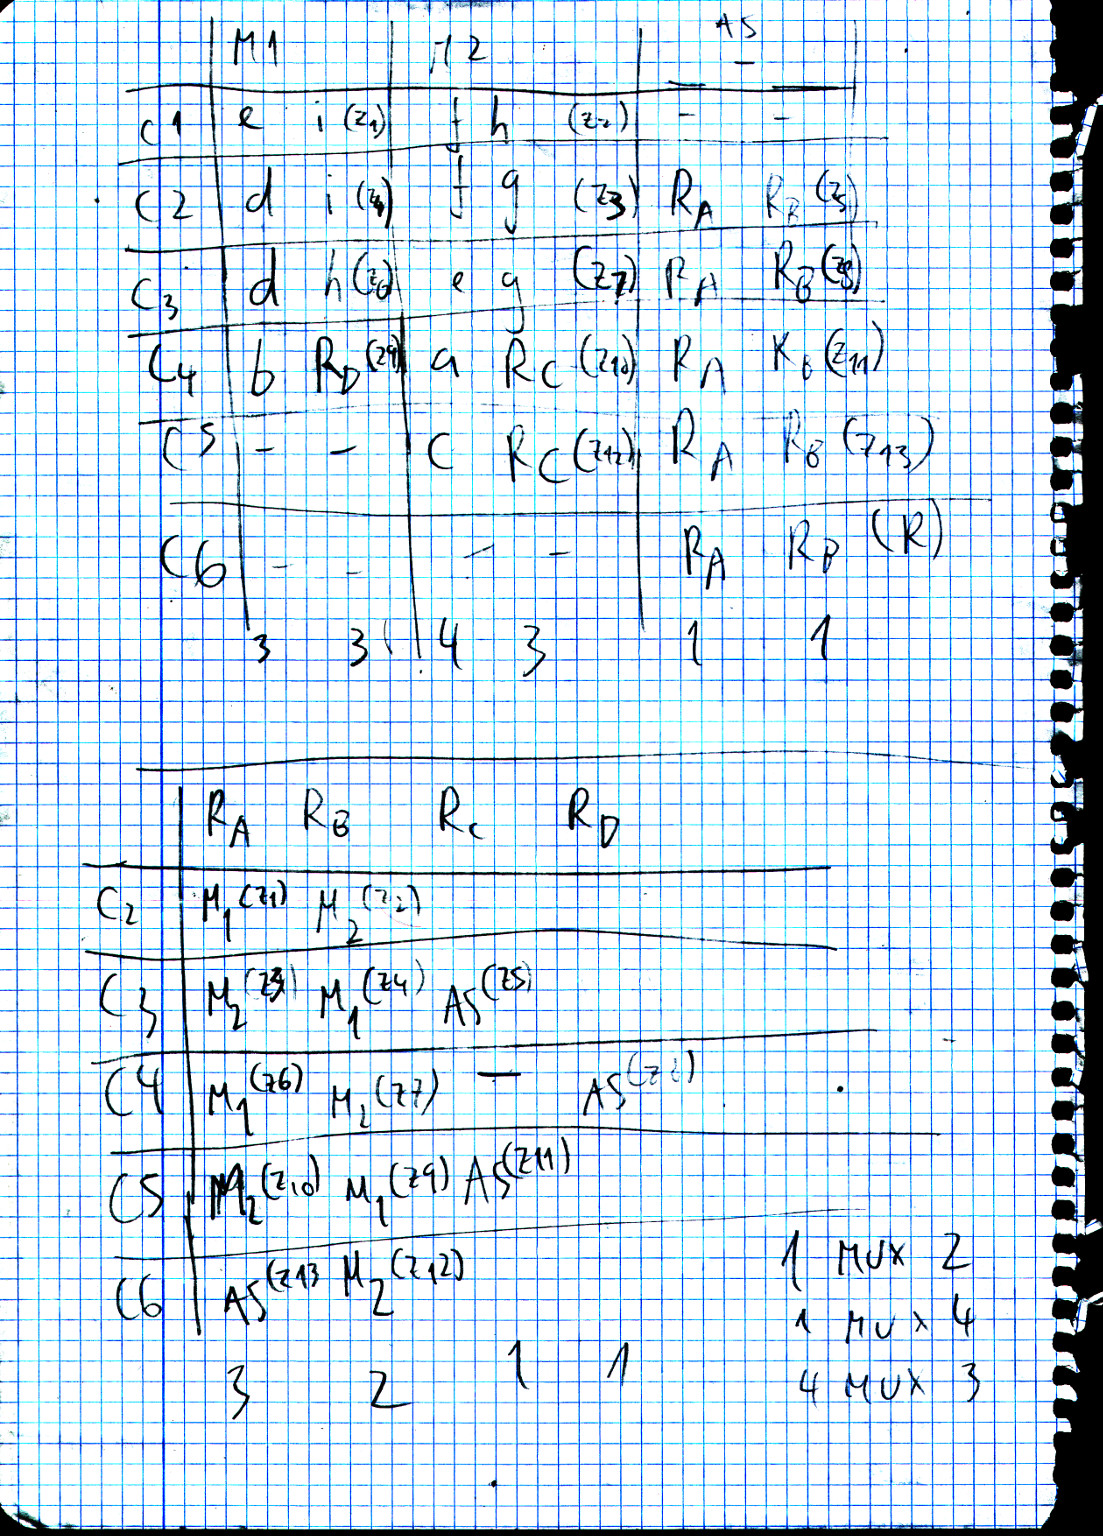 M1 M2 AS
-
C1 e i (z1) f h (z2) - -
C2 d i (z4) f g (z3) RA RB (z5)
C3 d h (z6) e g (z7) RA RB (z8)
C4 b RD (z9) a RC (z10) RA RB (z11)
C5 - - C RC (z12) RA RB (z13)
C6 - - - - RA RB (R)
3 3 4 3 1 1
RA RB RC RD
C2 M1(z1) M2(z2)
C3 M2(z3) M1(z4) AS(z5)
C4 M1(z6) M2(z7) - AS(z8)
C5 M2(z10) M1(z9) AS(z11)
C6 AS(z13 M2(z12)
3 2 1 1
1 MUX 2
1 MUX 4
4 MUX 3